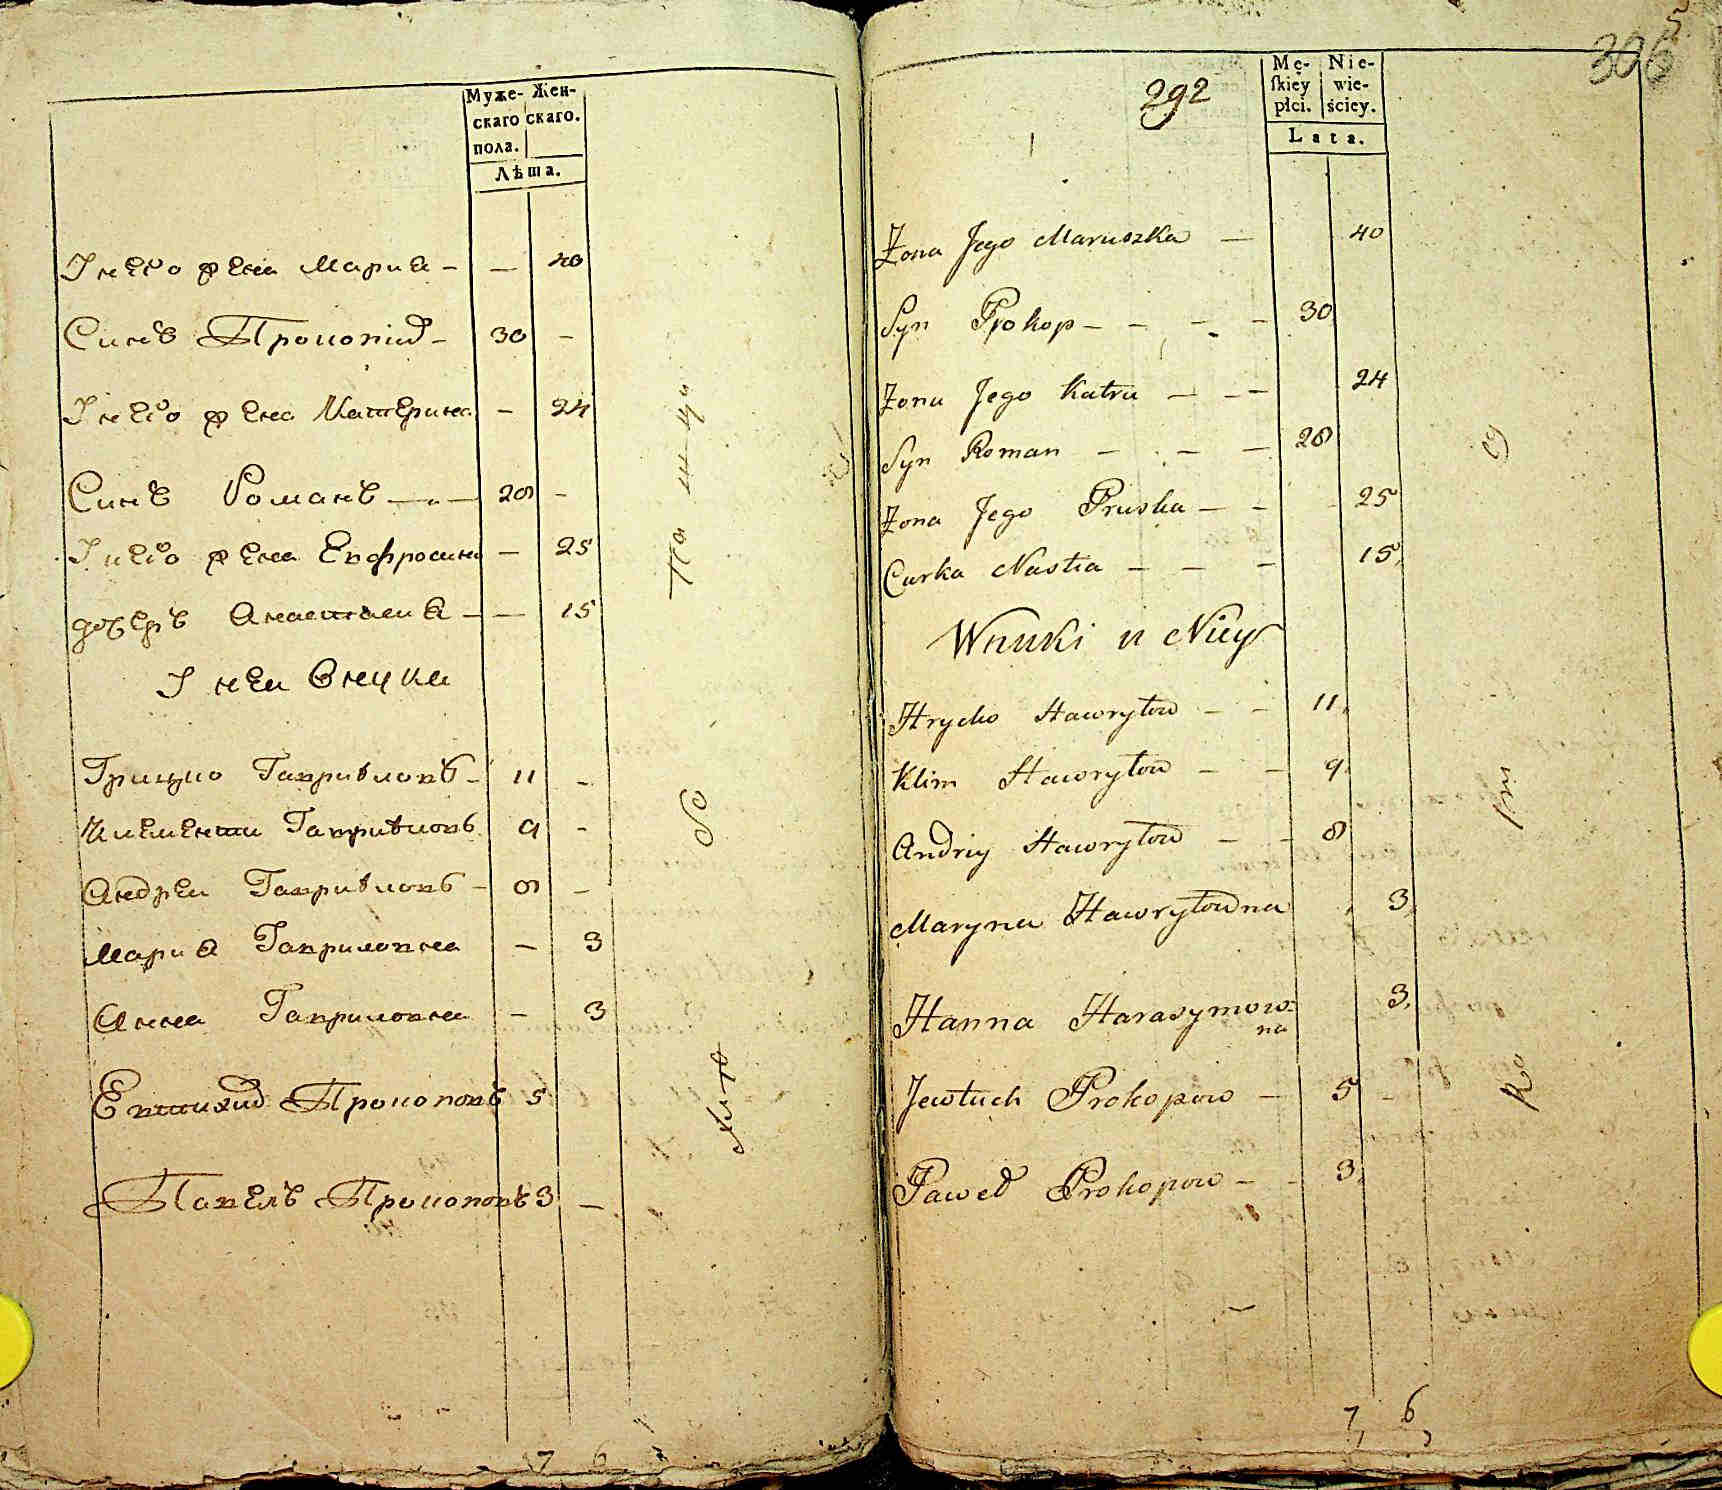 Муже- Жен-
скаго скаго.
пола.
Лѣта.
У него жена Мариа - — 40
Синъ Прокопій - 30 -
У него жена Катерина - 24
Синъ Романъ — 28 -
У него жена Евфросина - 25
дочеръ Анастасиа - — 15
У неи Внуки
Грицко Гавриловъ - 11 -
Климентии Гавриловъ 9 -
Андреи Гавриловъ - 8 -
Мариа Гавриловна - 3
Анна Гавриловна - 3
Евтихий Прокоповъ 5
Павелъ Прокоповъ 3 -
7 6
5
306
292
Mę- Nie-
skiey wie-
płci. ściey.
Lata.
Żona Jego Maruszka — 40
Syn Prokop - - - - 30
Żona Jego Katra - - - 24
Syn Roman - - - 28
Żona Jego Pruska - - 25
Curka Nastia - - - 15
Wnuki u Niey
Hrycko Hawryłow - - 11
Klim Hawryłow - - 9
Andriy Hawryłow - - 8
Maryna Hawryłowna 3
Hanna Harasymow=
na 3
Jewtuch Prokopow - 5 -
Paweł Prokopow - - 3
7 6